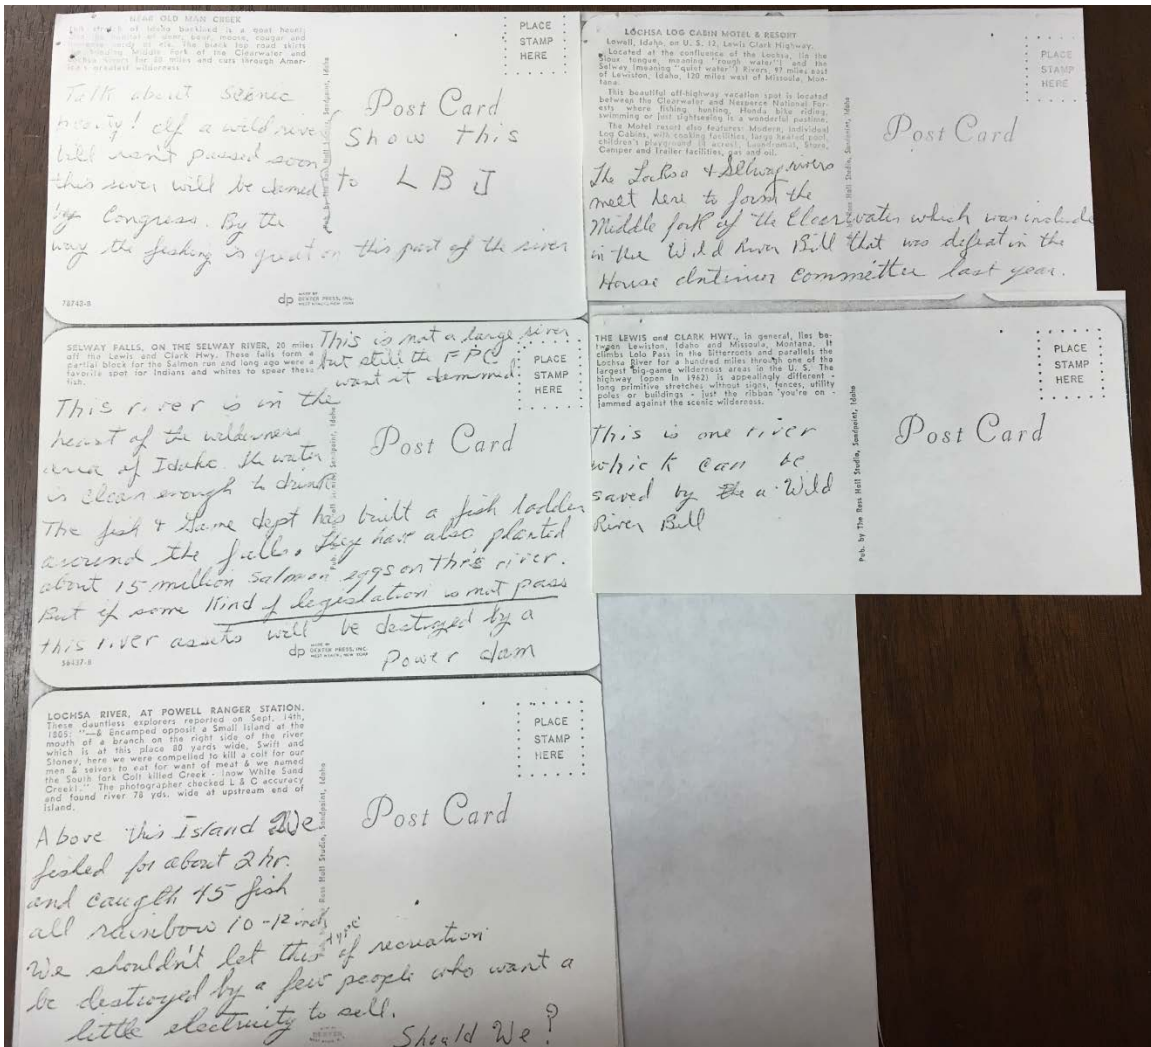 NEAR OLD MAN CREEK
stretch of Idaho backland is a goat haunt,
of deer, bear, moose, cougar and
of elk. The black top road skirts
Middle Fork of the Clearwater and
Rivers for 80 miles and cuts through Amer-
greatest wilderness
PLACE
STAMP
HERE
Post Card
Talk about Scenic
beauty! If a wild river
bill isn't passed soon
this river will be damed
by Congress. By the
way the fishing is great on this part of the river
Show this
to L B J
Pub. by the Ross Hall Studio, Sandpoint, Idaho
78743-B
dp
MADE BY
DEXTER PRESS, INC.
WEST NYACK, NEW YORK
LOCHSA LOG CABIN MOTEL & RESORT
Lowell, Idaho, on U. S. 12, Lewis Clark Highway.
Located at the confluence of the Lochsa, (in the
Sioux tongue, meaning "rough water") and the
Selway (meaning "quiet water") Rivers, 97 miles east
of Lewiston, Idaho, 120 miles west of Missoula, Mon-
tana.
This beautiful off-highway vacation spot is located
between the Clearwater and Nezperce National For-
ests where fishing, hunting, Honda bike riding,
swimming or just sightseeing is a wonderful pastime.
The Motel resort also features: Modern, individual
Log Cabins, with cooking facilities, large heated pool,
children's playground (4 acres), Laundromat, Store,
Camper and Trailer facilities, gas and oil.
PLACE
STAMP
HERE
Post Card
Ross Hall Studio, Sandpoint, Idaho
The Lochsa & Selway rivers
meet here to form the
Middle fork of the Clearwater which was include
in the Wild River Bill that was defeat in the
House Interior Committee last year.
SELWAY FALLS, ON THE SELWAY RIVER, 20 miles
off the Lewis and Clark Hwy. These falls form a
partial block for the Salmon run and long ago were a
favorite spot for Indians and whites to spear these
fish.
This is not a large river
but still the F P C
want it dammed
PLACE
STAMP
HERE
Post Card
This river is in the
heart of the wilderness
area of Idaho. The water
is clean enough to drink
The fish & Game dept has built a fish ladder
around the falls. They have also planted
about 15 million Salmon eggs on this river.
But if some Kind of legislation is not pass
this river assets will be destroyed by a
Power dam
Sandpoint, Idaho
56437-B
dp
MADE BY
DEXTER PRESS, INC.
WEST NYACK, NEW YORK
THE LEWIS and CLARK HWY., in general, lies be-
tween Lewiston, Idaho and Missoula, Montana. It
climbs Lolo Pass in the Bitterroots and parallels the
Lochsa River for a hundred miles through one of the
largest big-game wilderness areas in the U. S. The
highway (open in 1962) is appealingly different -
long primitive stretches without signs, fences, utility
poles or buildings - just the ribbon you're on -
jammed against the scenic wilderness.
PLACE
STAMP
HERE
Post Card
Pub. by The Ross Hall Studio, Sandpoint, Idaho
This is one river
which can be
saved by a Wild
River Bill
LOCHSA RIVER, AT POWELL RANGER STATION.
These dauntless explorers reported on Sept. 14th,
1805: "—& Encamped opposit a Small Island at the
mouth of a branch on the right side of the river
which is at this place 80 yards wide, Swift and
Stoney, here we were compelled to kill a colt for our
men & selves to eat for want of meat & we named
the South fork Colt killed Creek - (now White Sand
Creek)." The photographer checked L & C accuracy
and found river 78 yds. wide at upstream end of
island.
PLACE
STAMP
HERE
Post Card
Ross Hall Studio, Sandpoint, Idaho
Above this Island We
fished for about 2 hr.
and caugth 45 fish
all rainbow 10-12 inch
We shouldn't let this type of recreation
be destroyed by a few people who want a
little electricity to sell.
Should We?
DEXTER